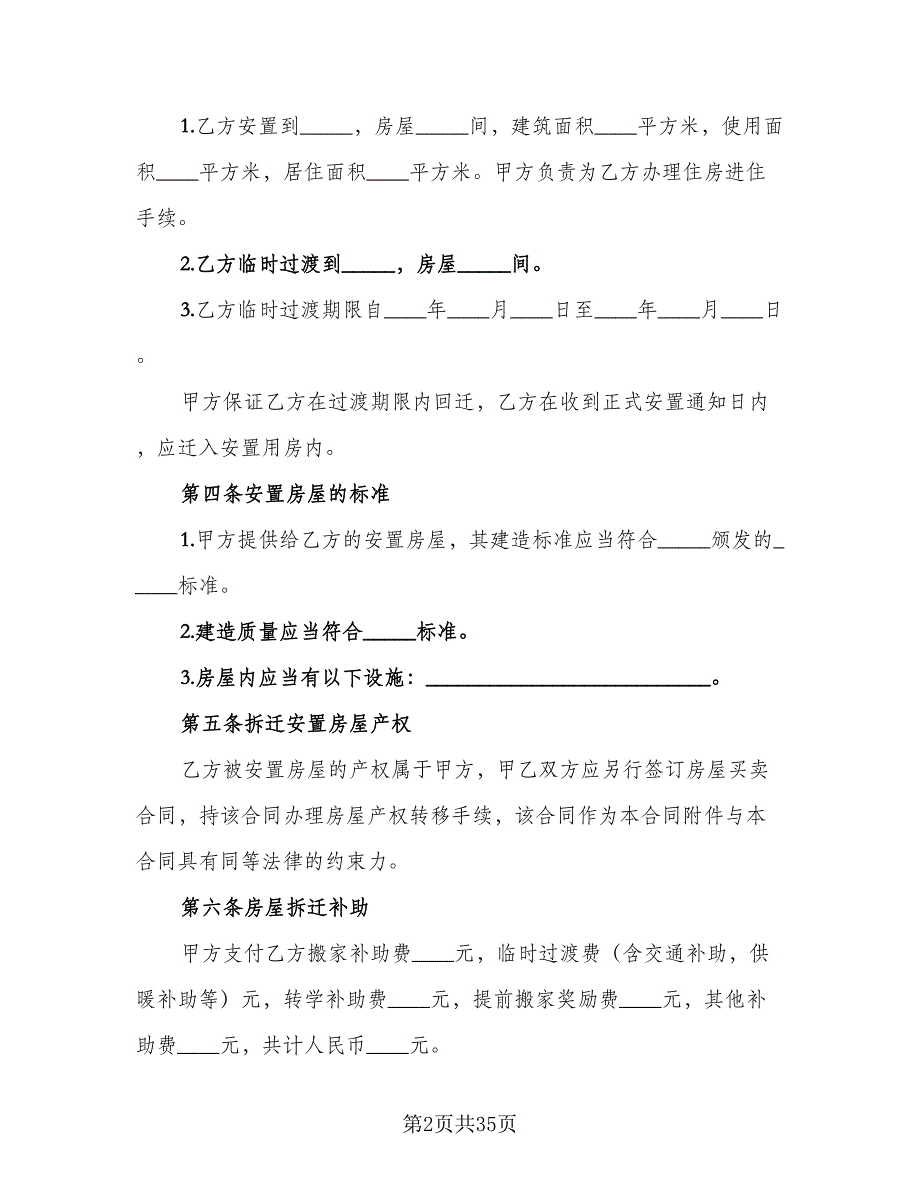 1.乙方安置到_____，房屋_____间，建筑面积____平方米，使用面
积____平方米，居住面积____平方米。甲方负责为乙方办理住房进住
手续。
2.乙方临时过渡到_____，房屋_____间。
3.乙方临时过渡期限自____年____月____日至____年____月____日
。
甲方保证乙方在过渡期限内回迁，乙方在收到正式安置通知日内
，应迁入安置用房内。
第四条安置房屋的标准
1.甲方提供给乙方的安置房屋，其建造标准应当符合_____颁发的_
____标准。
2.建造质量应当符合_____标准。
3.房屋内应当有以下设施：___________________________。
第五条拆迁安置房屋产权
乙方被安置房屋的产权属于甲方，甲乙双方应另行签订房屋买卖
合同，持该合同办理房屋产权转移手续，该合同作为本合同附件与本
合同具有同等法律的约束力。
第六条房屋拆迁补助
甲方支付乙方搬家补助费____元，临时过渡费（含交通补助，供
暖补助等）元，转学补助费____元，提前搬家奖励费____元，其他补
助费____元，共计人民币____元。
第2页共35页